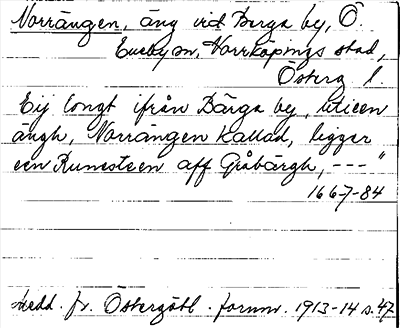 Norrängen, äng vid Berga by, Ö.
Eneby sn, Norrköpings stad,
Österg l
Eij långt ifrån Bärga by, uti een
ängh, Norrängen kallad, ligger
een Runesteen aff Gråbärgh, --- "
1667-84
Medd. fr. Östergötl. fornm. 1913-14 s. 47